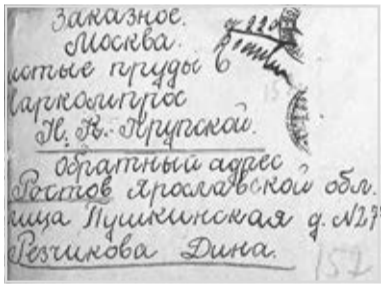 Заказное.
Москва.
истые пруды 6
Наркомпрос
Н. К. Крупской.
Обратный адрес
Ростов Ярославской обл.
лица Пушкинская д. №27
Резчикова Дина.
152